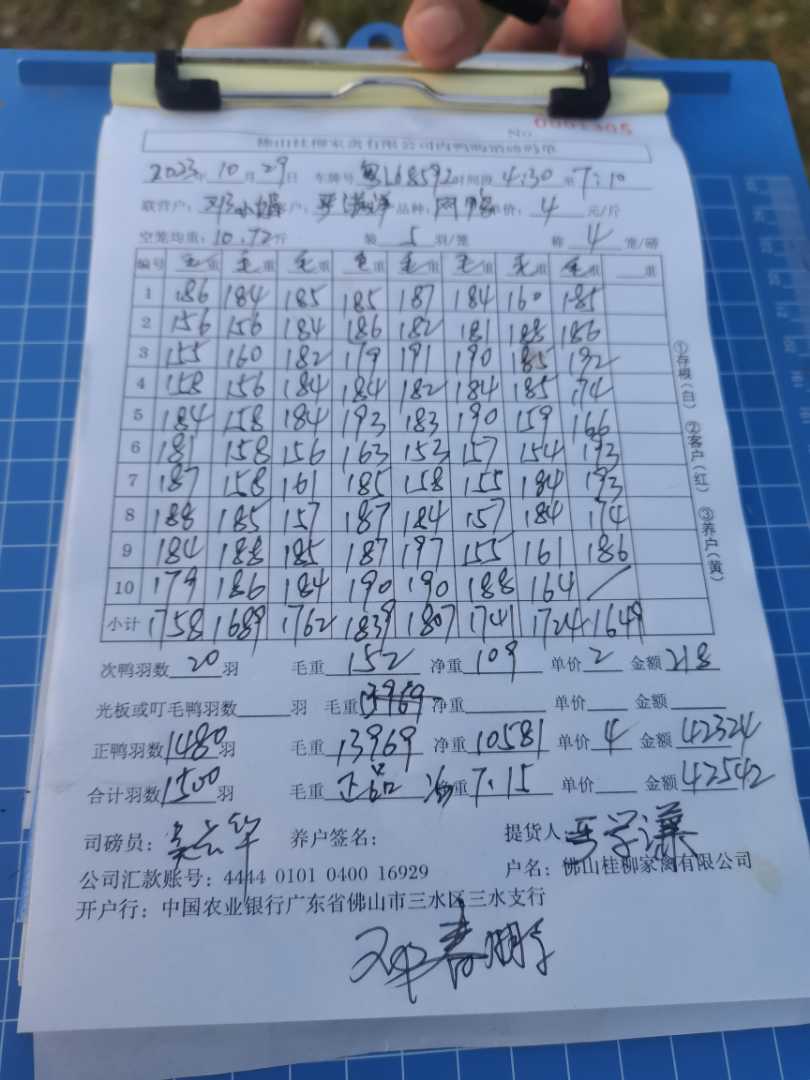 No 0001305
佛山桂柳家禽有限公司肉鸭购销磅码单
2023年 10月 29日 车牌号 粤L68592 时间段 4:30 至 7:10
联营户： 客户： 品种： 单价： 4 元/斤
空笼均重：10.72斤 装 5 羽/笼 称 4 笼/磅
编号 毛重 毛重 毛重 毛重 毛重 毛重 毛重 毛重 重
1 186 184 185 185 187 184 160 185
2 156 156 184 186 182 181 188 186
3 155 160 182 179 191 190 185 192
4 158 156 184 184 182 184 185 174
5 184 158 184 193 183 190 159 166
6 181 158 156 163 153 157 154 193
7 187 158 161 185 158 155 184 193
8 188 185 157 187 184 157 184 174
9 184 188 185 187 197 155 161 186
10 179 186 184 190 190 188 164 /
小计 1758 1689 1762 1839 1807 1741 1724 1649
①存根（白） ②客户（红） ③养户（黄）
次鸭羽数 20 羽 毛重 152 净重 109 单价 2 金额 218
光板或叮毛鸭羽数 羽 毛重 13969 净重 单价 金额
正鸭羽数 1480 羽 毛重 13969 净重 10581 单价 4 金额 42324
合计羽数 1500 羽 毛重 正品 净重 7.15 单价 金额 42542
司磅员： 养户签名： 提货人：
公司汇款账号：4444 0101 0400 16929 户名：佛山桂柳家禽有限公司
开户行：中国农业银行广东省佛山市三水区三水支行